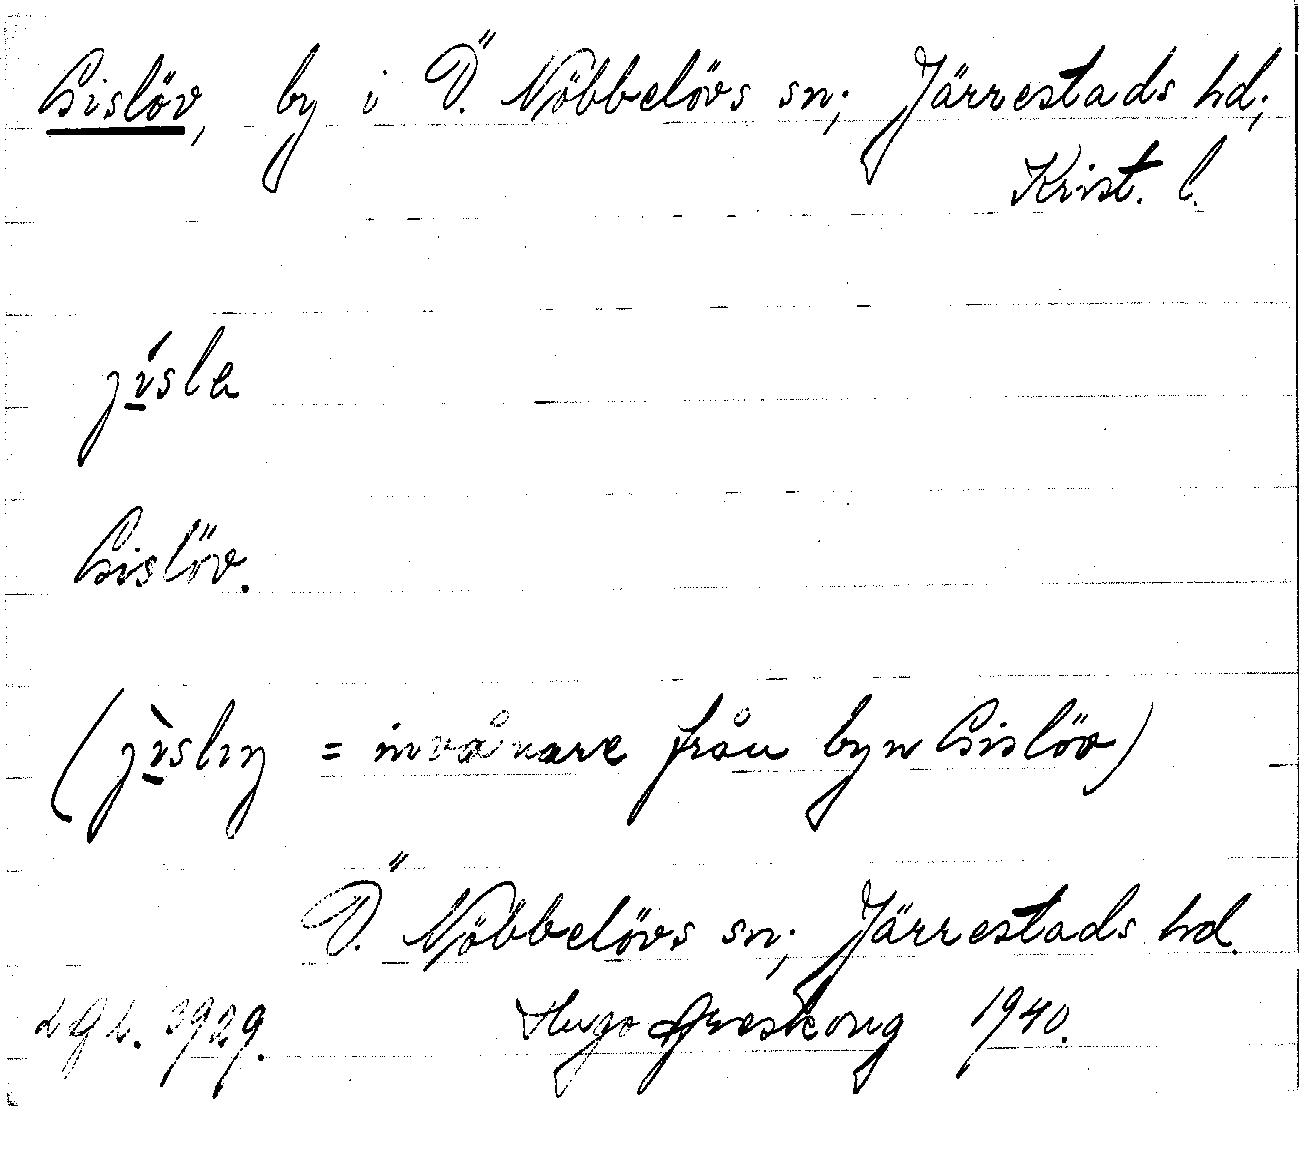 Gislöv, by i Ö. Nöbbelövs sn; Järrestads hd;
Krist. l.
jísla
Gislöv.
(jìsliŋ = invånare från byn Gislöv)
Ö. Nöbbelövs sn; Järrestads hd.
LGL. 3929. Hugo Areskoug 1940.